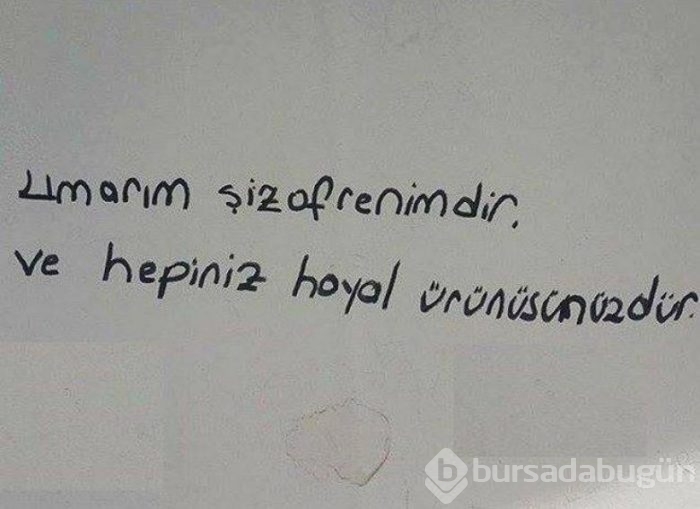 umarım şizofrenimdir.
ve hepiniz hayal ürünüsünüzdür.
bursadabugün